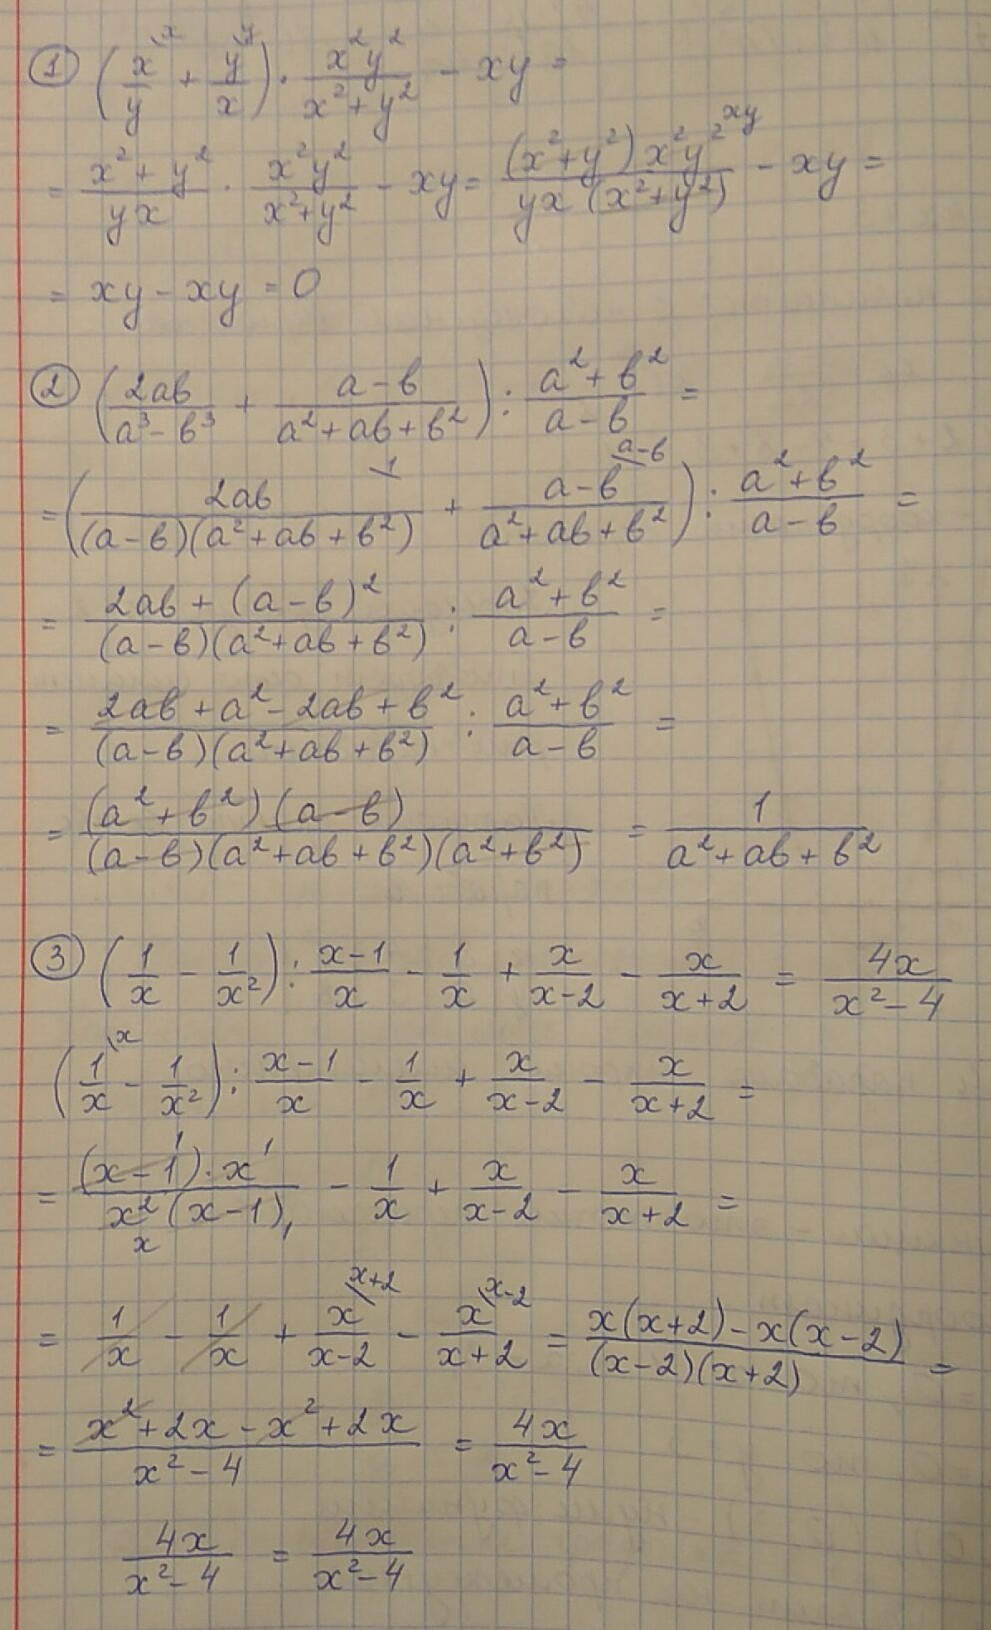 ① (x/y + y/x) · x²y²/(x²+y²) - xy =
= (x²+y²)/(yx) · x²y²/(x²+y²) - xy = (x²+y²)x²y²/(yx(x²+y²)) - xy =
= xy - xy = 0
② (2ab/(a³-b³) + (a-b)/(a²+ab+b²)) : (a²+b²)/(a-b) =
= (2ab/((a-b)(a²+ab+b²)) + (a-b)/(a²+ab+b²)) : (a²+b²)/(a-b) =
= (2ab+(a-b)²)/((a-b)(a²+ab+b²)) : (a²+b²)/(a-b) =
= (2ab+a²-2ab+b²)/((a-b)(a²+ab+b²)) : (a²+b²)/(a-b) =
= (a²+b²)(a-b)/((a-b)(a²+ab+b²)(a²+b²)) = 1/(a²+ab+b²)
③ (1/x - 1/x²) : (x-1)/x - 1/x + x/(x-2) - x/(x+2) = 4x/(x²-4)
(1/x - 1/x²) : (x-1)/x - 1/x + x/(x-2) - x/(x+2) =
= (x-1)·x/(x²(x-1)) - 1/x + x/(x-2) - x/(x+2) =
= 1/x - 1/x + x/(x-2) - x/(x+2) = (x(x+2)-x(x-2))/((x-2)(x+2)) =
= (x²+2x-x²+2x)/(x²-4) = 4x/(x²-4)
4x/(x²-4) = 4x/(x²-4)